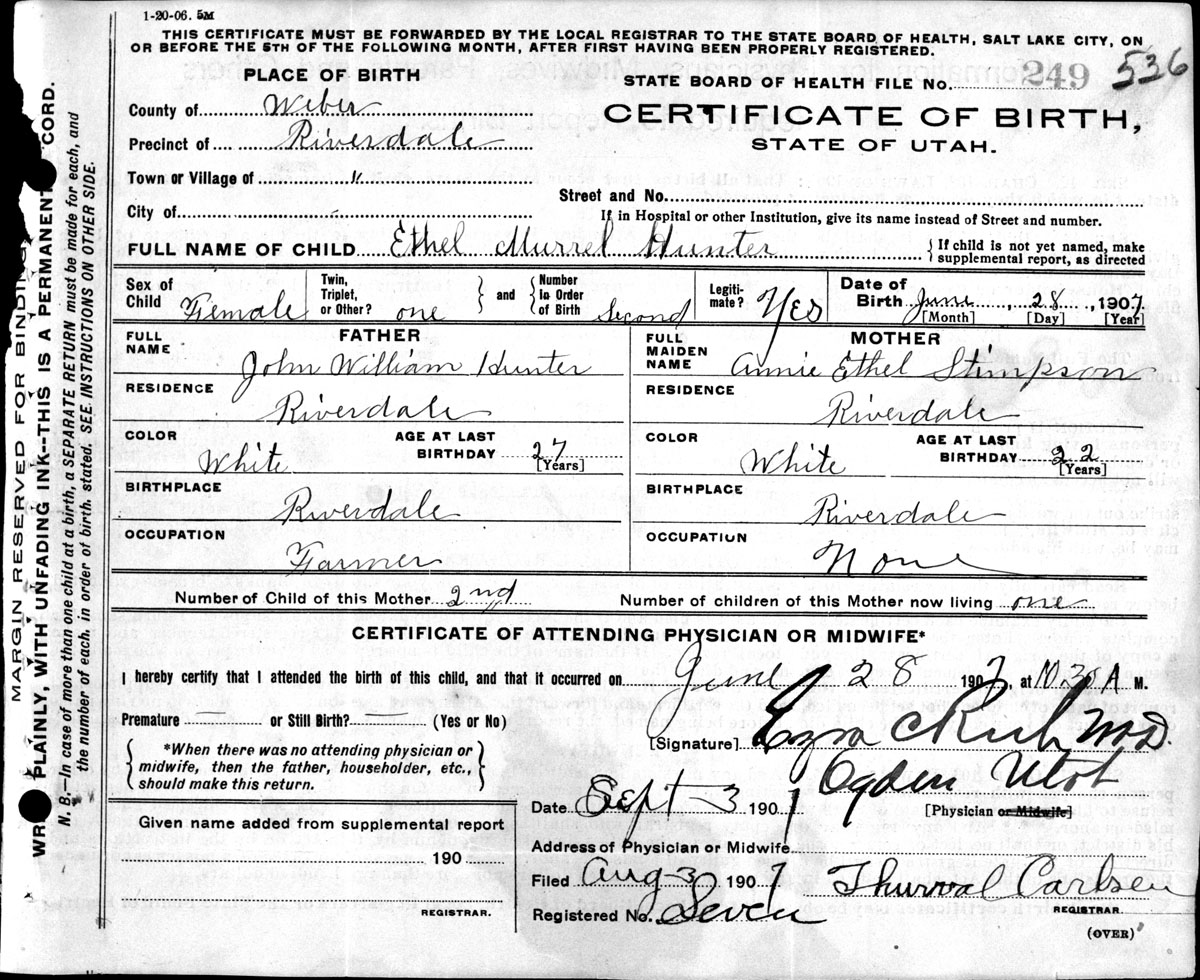 1-20-06. 5M
THIS CERTIFICATE MUST BE FORWARDED BY THE LOCAL REGISTRAR TO THE STATE BOARD OF HEALTH, SALT LAKE CITY, ON
OR BEFORE THE 5TH OF THE FOLLOWING MONTH, AFTER FIRST HAVING BEEN PROPERLY REGISTERED.
PLACE OF BIRTH
STATE BOARD OF HEALTH FILE No. 249 536
County of Weber
CERTIFICATE OF BIRTH,
Precinct of Riverdale
STATE OF UTAH.
Town or Village of "
Street and No.
City of -
If in Hospital or other Institution, give its name instead of Street and number.
FULL NAME OF CHILD Ethel Murrel Hunter { If child is not yet named, make
supplemental report, as directed
Sex of Child Female Twin, Triplet, or Other? one } and { Number In Order of Birth Second Legiti- mate? Yes Date of Birth June, 28, 1907
[Month] [Day] [Year]
FATHER
FULL NAME John William Hunter
RESIDENCE
Riverdale
COLOR White AGE AT LAST BIRTHDAY 27
[Years]
BIRTHPLACE
Riverdale
OCCUPATION
Farmer
MOTHER
FULL MAIDEN NAME Annie Ethel Stimpson
RESIDENCE
Riverdale
COLOR White AGE AT LAST BIRTHDAY 22
[Years]
BIRTHPLACE
Riverdale
OCCUPATION
None
Number of Child of this Mother 2nd Number of children of this Mother now living one
CERTIFICATE OF ATTENDING PHYSICIAN OR MIDWIFE*
I hereby certify that I attended the birth of this child, and that it occurred on June 28 1907, at 10.30 A M.
Premature — or Still Birth? — (Yes or No)
[Signature] Ezra C Rich M.D.
*When there was no attending physician or
midwife, then the father, householder, etc.,
should make this return.
Ogden Utah
Date Sept 3 1907 [Physician or Midwife]
Given name added from supplemental report
Address of Physician or Midwife
190
Filed Aug 3 1907 Thurval Carlsen
REGISTRAR.
Registered No. Seven REGISTRAR.
(OVER)
MARGIN RESERVED FOR BINDING
PLAINLY, WITH UNFADING INK--THIS IS A PERMANENT CORD.
N. B.—In case of more than one child at a birth, a SEPARATE RETURN must be made for each, and
the number of each, in order of birth, stated. SEE INSTRUCTIONS ON OTHER SIDE.